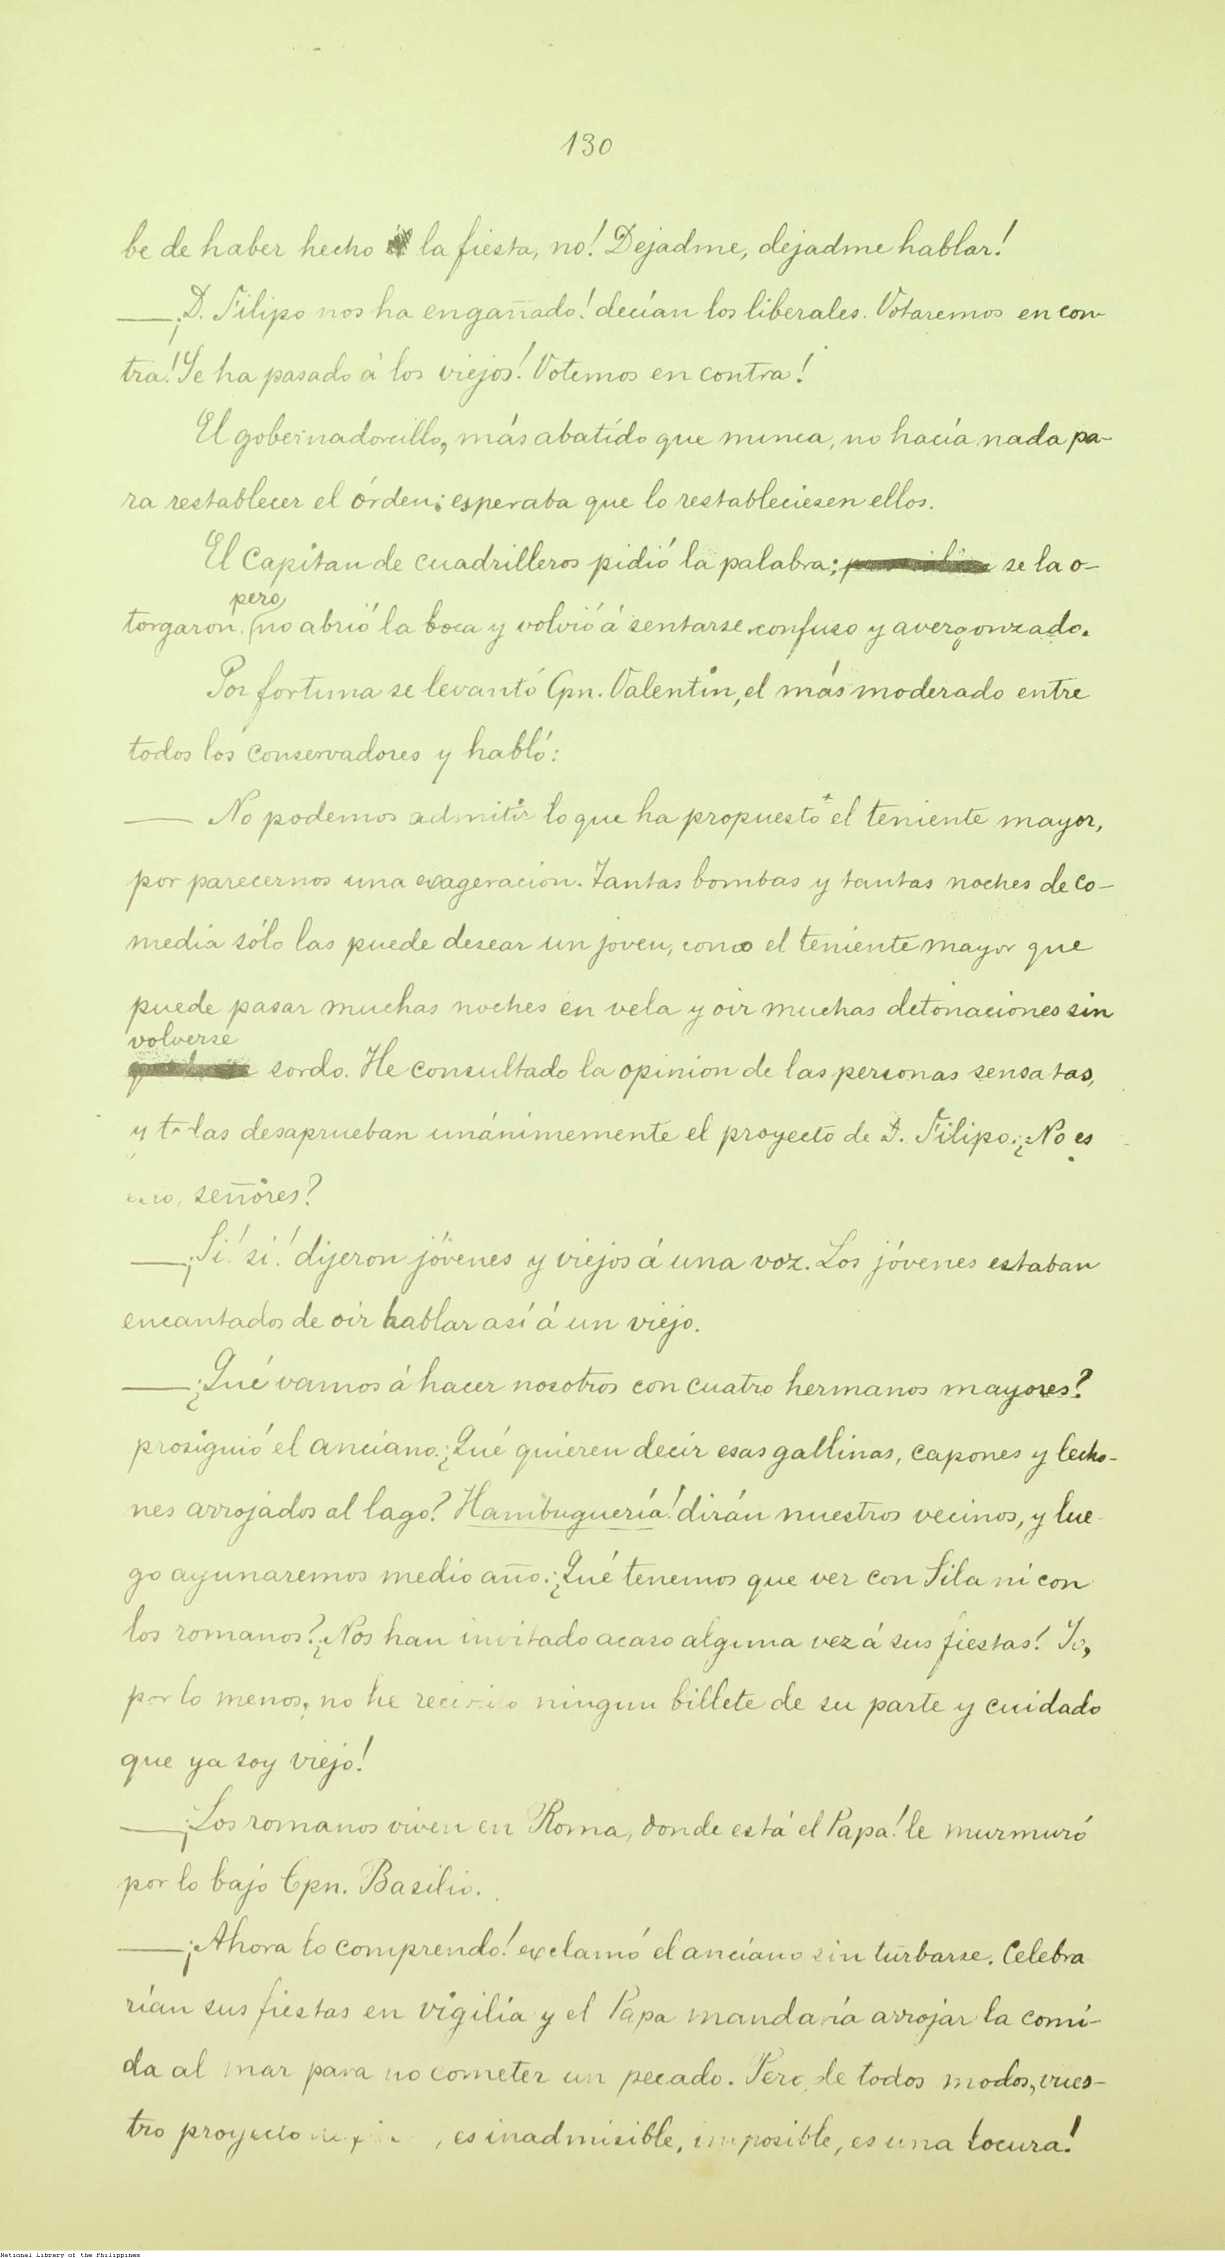 130
be de haber hecho la fiesta, no! Dejadme, dejadme hablar!
—¡D. Filipo nos ha engañado! decían los liberales. Votaremos en con-
tra! Se ha pasado á los viejos! Votemos en contra!
El gobernadorcillo, más abatido que nunca, no hacía nada pa-
ra restablecer el órden; esperaba que lo restableciesen ellos.
El Capitan de cuadrilleros pidió la palabra; se la o-
pero
torgaron, no abrió la boca y volvió á sentarse confuso y avergonzado.
Por fortuna se levantó Cpn. Valentin, el más moderado entre
todos los conservadores y habló:
— No podemos admitir lo que ha propuesto el teniente mayor,
por parecernos una exageracion. Tantas bombas y tantas noches de co-
media sólo las puede desear un joven, como el teniente mayor que
puede pasar muchas noches en vela y oir muchas detonaciones sin
volverse
sordo. He consultado la opinion de las personas sensatas,
y t das desaprueban unánimemente el proyecto de D. Filipo. ¿No es
señores?
—¡Si! si! dijeron jóvenes y viejos á una voz. Los jóvenes estaban
encantados de oir hablar así á un viejo.
—¿Qué vamos á hacer nosotros con cuatro hermanos mayores?
prosiguió el anciano. ¿Qué quieren decir esas gallinas, capones y lecho-
nes arrojados al lago? Hambuguería! dirán nuestros vecinos, y lue-
go ayunaremos medio año. ¿Qué tenemos que ver con Sila ni con
los romanos? ¿Nos han invitado acaso alguna vez á sus fiestas? Yo,
por lo menos, no he recibido ningun billete de su parte y cuidado
que ya soy viejo!
—¡Los romanos viven en Roma, donde está el Papa! le murmuró
por lo bajo Cpn. Basilio.
—¡Ahora lo comprendo! exclamó el anciano sin turbarse. Celebra
rían sus fiestas en vigilia y el Papa mandaría arrojar la comi-
da al mar para no cometer un pecado. Pero, de todos modos, vues-
tro proyecto, es inadmisible, imposible, es una locura!
National Library of the Philippines